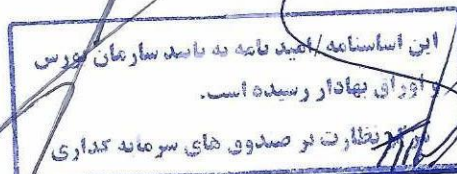 این اساسنامه / امید نامه به تایید سازمان بورس
و اوراق بهادار رسیده است.
مدیریت نظارت بر صندوق های سرمایه گذاری